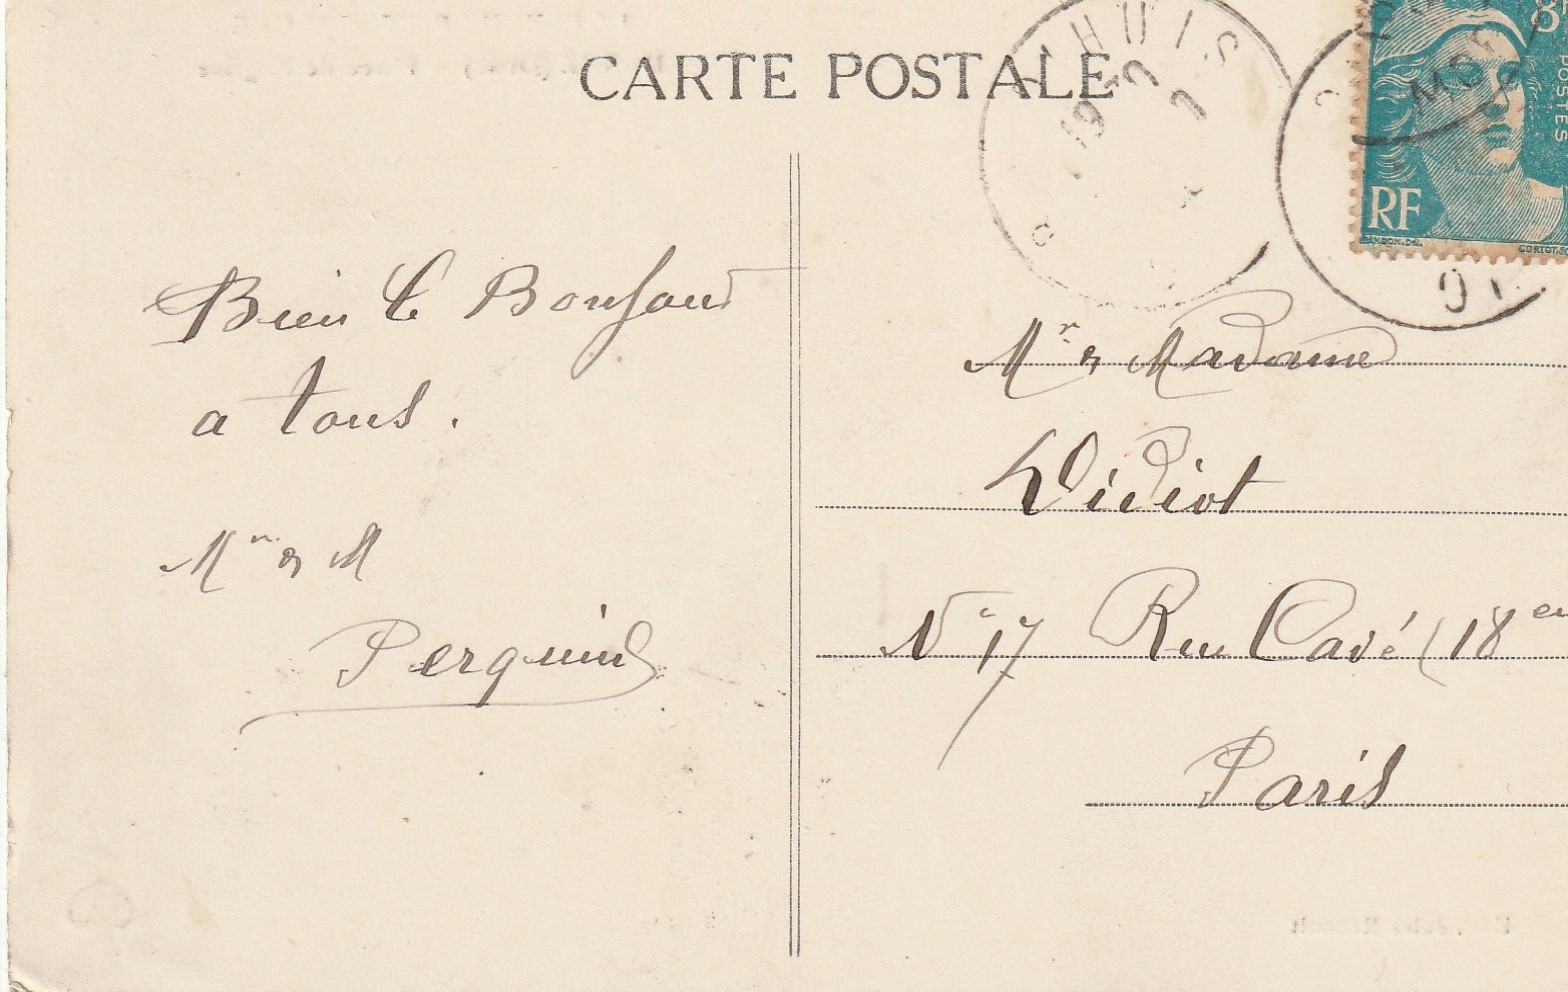 CARTE POSTALE
Bien le Bonjour
a tous.
Mr & M
Perquin
Mr & Madame
Didiot
N° 17 Rue Cavé (18 em
Paris
RF
POSTES